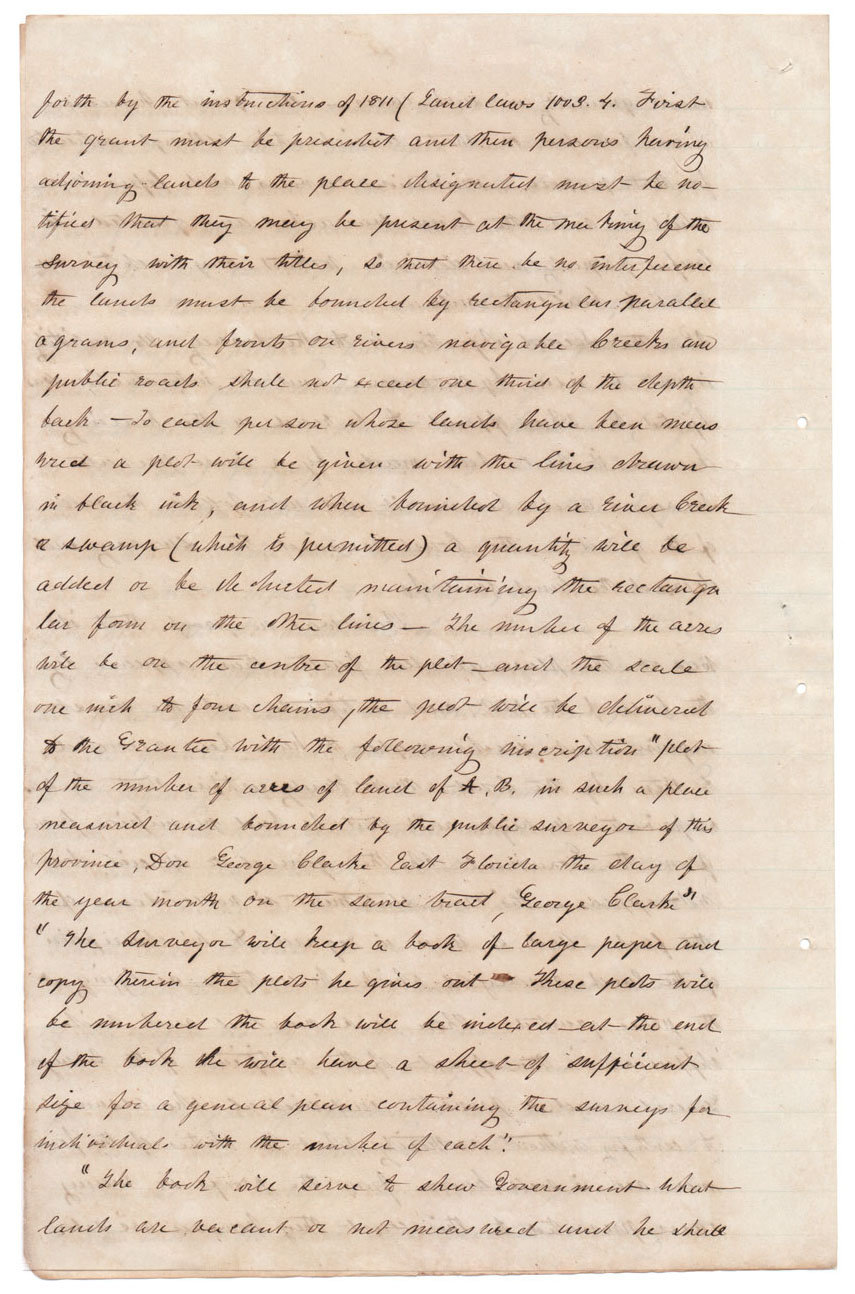 forth by the instructions of 1811 (Land laws 1003. 4. First
the grant must be presented and then persons having
adjoining lands to the place designated must be no-
tified that they may be present at the making of the
survey with their titles, so that there be no interference
the lands must be bounded by rectangular parallel
ograms, and fronts on rivers navigable Creeks and
public roads shall not exceed one third of the depth
back — To each person whose lands have been meas
ured a plot will be given with the lines drawn
in black ink, and when bounded by a river Creek
or swamp (which is permitted) a quantity will be
added or be deducted maintaining the rectangu
lar form on the other lines — The number of the acres
will be on the centre of the plot — and the scale
one inch to four chains, the plot will be delivered
to the Grantee with the following inscription "plot
of the number of acres of land of A. B. in such a place
measured and bounded by the public surveyor of this
province, Don George Clarke East Florida the day of
the year month on the same tract, George Clarke"
"The surveyor will keep a book of large paper and
copy therein the plots he gives out — These plots will
be numbered the book will be indexed — at the end
of the book he will have a sheet of sufficient
size for a general plan containing the surveys for
individuals with the number of each".
"The book will serve to shew Government what
lands are vacant or not measured and he shall